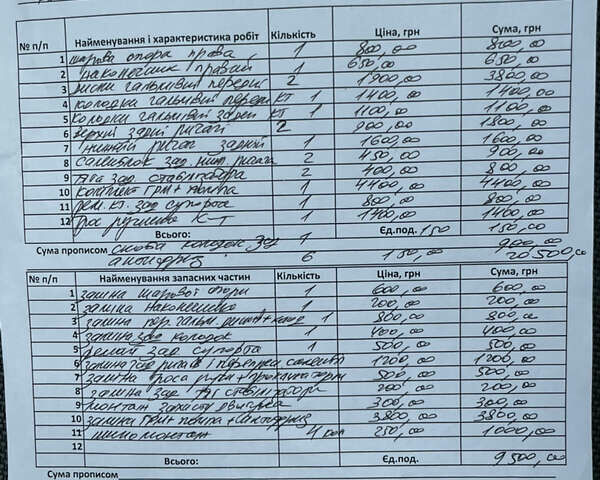 № п/п Найменування і характеристика робіт Кількість Ціна, грн Сума, грн
1 шарова опора права 1 800,00 800,00
2 наконечник правий 1 650,00 650,00
3 диски гальмівні передні 2 1900,00 3800,00
4 колодка гальмівні передн КТ 1 1400,00 1400,00
5 колодки гальмівні задні КТ 1 1100,00 1100,00
6 верхні задні ричаги 2 900,00 1800,00
7 нижній ричаг задній 1 1600,00 1600,00
8 салейблок зад. ниж. ричага 2 450,00 900,00
9 тяга зад. стабілізатора 2 400,00 800,00
10 комплект ГРМ + помпа 1 4400,00 4400,00
11 рем. кт. зад супорта 1 800,00 800,00
12 Трос ручника К-Т 1 1400,00 1400,00
Всього: Єд.под. 150 150,00
Сума прописом скоба колодок зад 1 900,00
антифриз 6 150,00 20 500,00
№ п/п Найменування запасних частин Кількість Ціна, грн Сума, грн
1 заміна шарової опори 1 600,00 600,00
2 заміна наконечника 1 200,00 200,00
3 заміна пер. гальм. дисків + колод 1 800,00 800,00
4 заміна зад колодок 1 400,00 400,00
5 ремонт зад супорта 1 500,00 500,00
6 заміна зад ричагів і 1200,00 1200,00
7 заміна троса ручн + 500,00 500,00
8 заміна зад тяг стабілізатора 200,00 200,00
9 монтаж захисту двигуна 300,00 300,00
10 заміна ГРМ + помпа + антифриз 3800,00 3800,00
11 шиномонтаж 4 250,00 1000,00
12
Всього: Єд.под. 9 500,00
Сума прописом